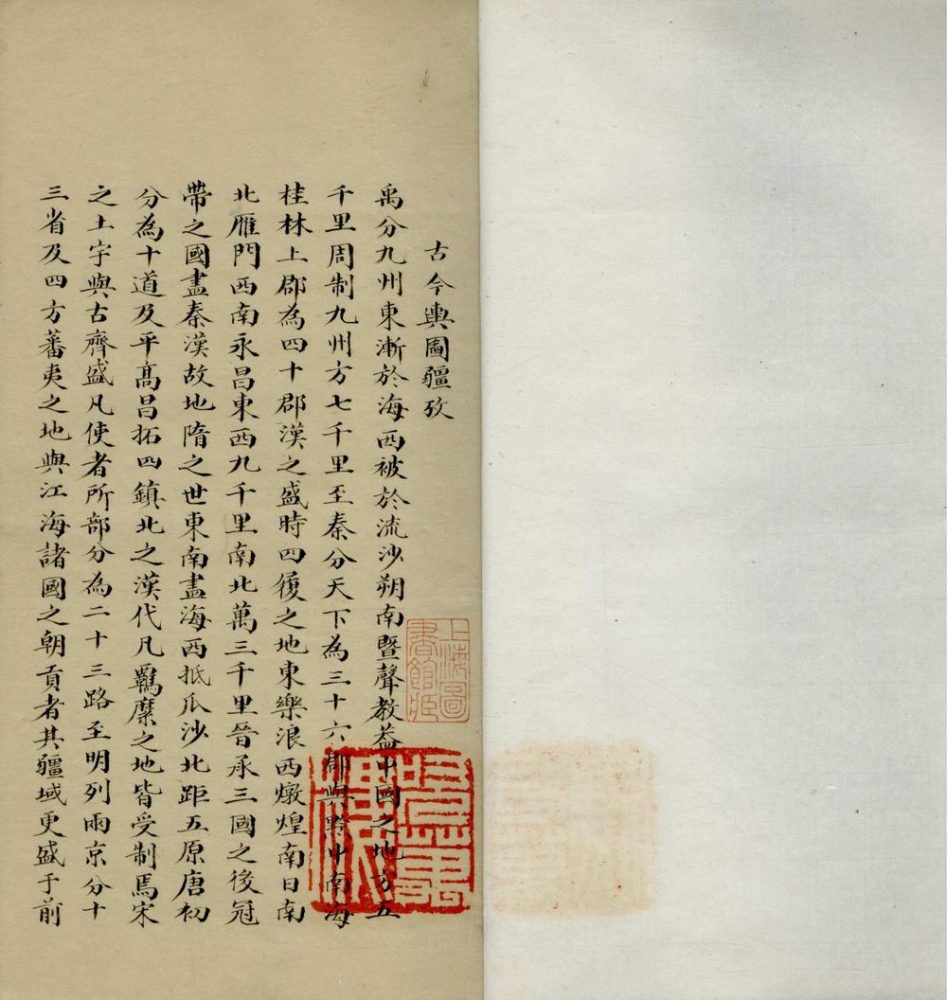 古今輿圖疆攷
禹分九州東漸於海西被於流沙朔南暨聲教蓋中國之地方五
千里周制九州方七千里至秦分天下為三十六郡與黔中南海
桂林上郡為四十郡漢之盛時四履之地東樂浪西燉煌南日南
北雁門西南永昌東西九千里南北萬三千里晉承三國之後冠
帶之國盡秦漢故地隋之世東南盡海西抵瓜沙北距五原唐初
分為十道及平高昌拓四鎮北之漢代凡羈縻之地皆受制焉宋
之土宇與古齊盛凡使者所部分為二十三路至明列兩京分十
三省及四方蕃夷之地與江海諸國之朝貢者其疆域更盛于前
上海圖
書館藏